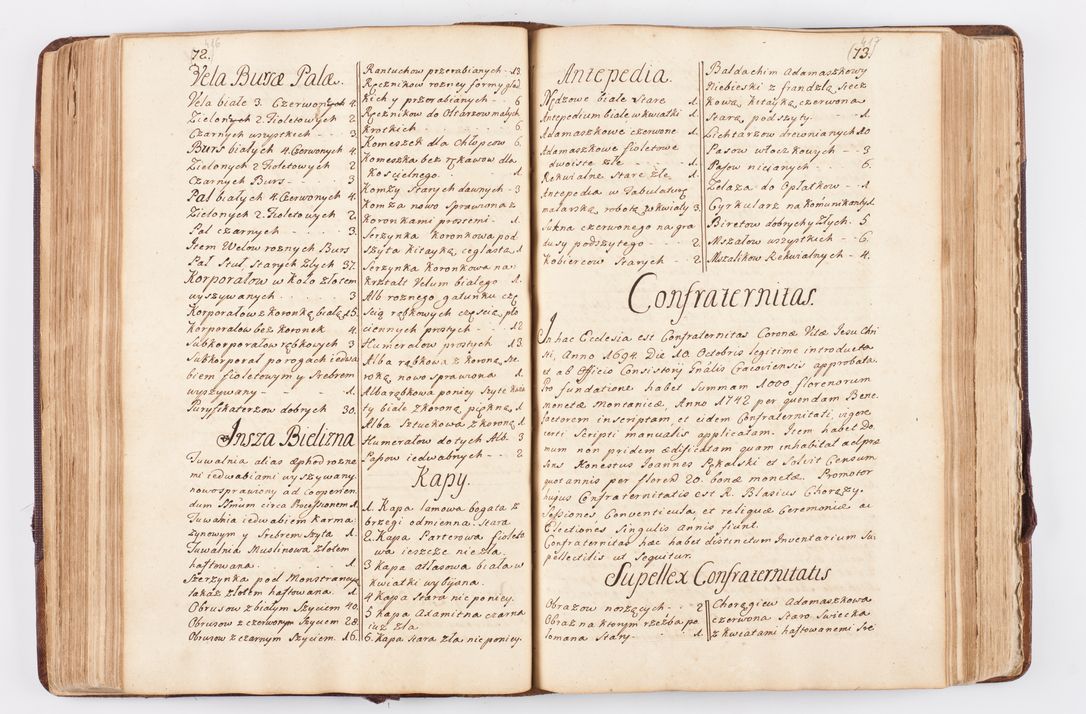 72.
416
Vela Bursæ Palæ.
Vela białe 3. Czerwonych 4.
Zielonych 2. Fioletowych 2
Czarnych wszystkich - - - 3
Burs białych 4. Czerwonych 4.
Zielonych 2 Fioletowych 2
Czarnych Burs - - - 3
Pal białych 4. Czerwonych 4.
Zielonych 2. Fioletowych 2
Pal czarnych - - - 3.
Item Welow roznych Burs
Pal Stuł Starych Złych 37.
Korporałow w koło złotem
wyszywanych - - - 3
Korporałow z koronką białą 15.
Korporałow bez koronek 4.
Subkorporałow rębkowych 3
Subkorporał po rogach iedwa
biem fioletowym y Srebrem
wyszywany - - - 1.
Puryfikaterzow dobrych 30.
Insza Bielizna
Tuwalnia alias æphod rozne
mi iedwabiami wyszywany.
nowosprawiony ad Cooperien
dum SSmum circa Processionem 1.
Tuwalnia iedwabiem karma
zynowym y Srebrem Szyta 1.
Tuwalnia Muslinowa złotem
haftowana - - - 1
Szerzynka pod Monstrancyą
takaż złotem haftowana. 1
Obrusow z białym Szyciem 40.
Obrusow z czerwonym Szyciem 28.
Obrusow z czarnym Szyciem. 16.
Rantuchow przerabianych - 13.
Ręcznikow rozney formy gład
kich y przerabianych - - 6
Ręcznikow do Ołtarzow małych
krotkich - - - 6.
Komeszek dla Chłopcow 6.
Komeszka bez rękawow dla
Koscielnego - - - 1
Komży Starych dawnych - 3
Komża nowo Sprawiona z
Koronkami prostemi - 1.
Serzynka Koronkowa pod
szyta kitayką ceglastą 1.
Serzynka Koronkowa na
krztałt Velum białego 1.
Alb roznego gatunku czę
scią rębkowych częscią pło
ciennych prostych - - - 12
Humerałow prostych 13.
Alba rębkowa z Koroną Sze
roką nowo sprawiona 1.
Alba rębkowa poniey Szyte kwia
ty białe z koroną piękną 1.
Alba Sztuchowa z koroną 1
Humerałow do tych Alb. 3
Pasow iedwabnych - - 2
Kapy.
1. Kapa lamowa bogata z
brzegi odmienna. Stara
2. Kapa Parterowa fioleto
wa ieszcze nie zła.
3 Kapa atłasowa biała w
kwiatki wybijana.
4 Kapa Stara nie poniey.
5 Kapa Adamitna czarna
iuż zła
6. Kapa Stara zła nie poniey.
(73.
417
Antepedia.
Nędzowe białe Stare 1.
Antepedium białe w kwiatki 1.
Adamaszkowe czerwone 1.
Adamaszkowe fioletowe
dwoiste złe - - - 1.
Rekwialne Stare złe 1.
Antepedia w Tabulaturę
malarską robotę zakwiały 3.
Sukna czerwonego na gra
dusy podszytego - - 2
Kobiercow Starych - - 2
Baldachim Adamaszkowy
Niebieski z frandzlą Siecz
kową kitayką czerwoną
Starą podszyty. - - 1.
Lichtarzow drewnianych 10
Pasow włoczkowych - - 3
Pasow nicianych - - 6.
Żelaza do Opłatkow - - 1
Cyrkularz na Komunikanty 1.
Biretow dobrych y Złych. 5
Mszałow wszystkich - - 6.
Mszalikow Rekwialnych - 4.
Confraternitas.
In hac Ecclesia est Confraternitas Coronæ Vitæ Jesu Chri
sti, Anno 1694. Die 10 Octobris legitime introducta
et ab Officio Consistorij Gnalis Cracoviensis approbata.
Pro fundatione habet Summam 1000 florenorum
monetæ Montanicæ, Anno 1742 per quendam Bene
factorem inscriptam, et eidem Confraternitati, vigore
certi Scripti manualis applicatam. Item habet Do
mum non pridem ædificatam quam inhabitat ad præ
sens Honestus Joannes Pękalski et Solvit Censum
quot annis per floren 20. bonæ monetæ. Promotor
hujus Confraternitatis est R. Blasius Chorąży.
Sessiones Conventicula, et reliquæ Ceremoniæ ac
Electiones Singulis Annis fiunt.
Confraternitas hæc habet distinctum Inventarium Su
pellectilis ut Sequitur.
Supellex Confraternitatis
Obrazow noszących - - 2
Obraz na ktorym rzezba po
łomana Stary. - - - 1.
Chorągiew Adamaszkowa
czerwona Staro Swiecka
z kwiatami haftowanemi Sre